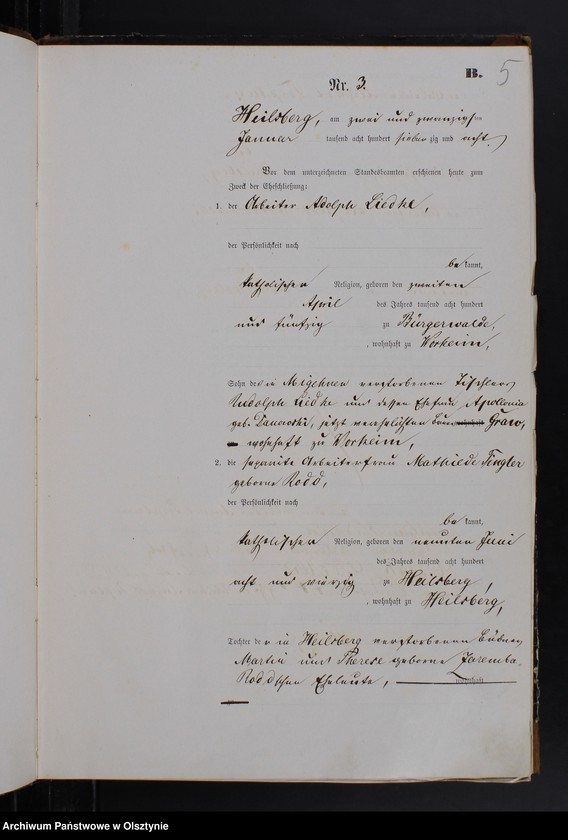 B. 5
Nr. 3.
Heilsberg, am zwei und zwanzigsten
Januar tausend acht hundert siebenzig und acht.
Vor dem unterzeichneten Standesbeamten erschienen heute zum
Zweck der Eheschließung:
1. der Arbeiter Adolph Liedke,
der Persönlichkeit nach
bekannt,
katholischer Religion, geboren den zweiten
April des Jahres tausend acht hundert
und fünfzig zu Bürgerwalde,
, wohnhaft zu Workeim,
Sohn des in Migehnen verstorbenen Tischlers
Rudolph Liedke und dessen Ehefrau Apollonia
geb. Danowski, jetzt verehelichten Graw,
wohnhaft zu Workeim,
2. die separirte Arbeiterfrau Mathilde
geborne Rodd,
der Persönlichkeit nach
bekannt,
katholischer Religion, geboren den neunten Juni
des Jahres tausend acht hundert
acht und vierzig zu Heilsberg,
, wohnhaft zu Heilsberg,
Tochter der in Heilsberg verstorbenen
Martin und Therese geborne Zaremba-
Rodd'schen Eheleute, wohnhaft
Archiwum Państwowe w Olsztynie